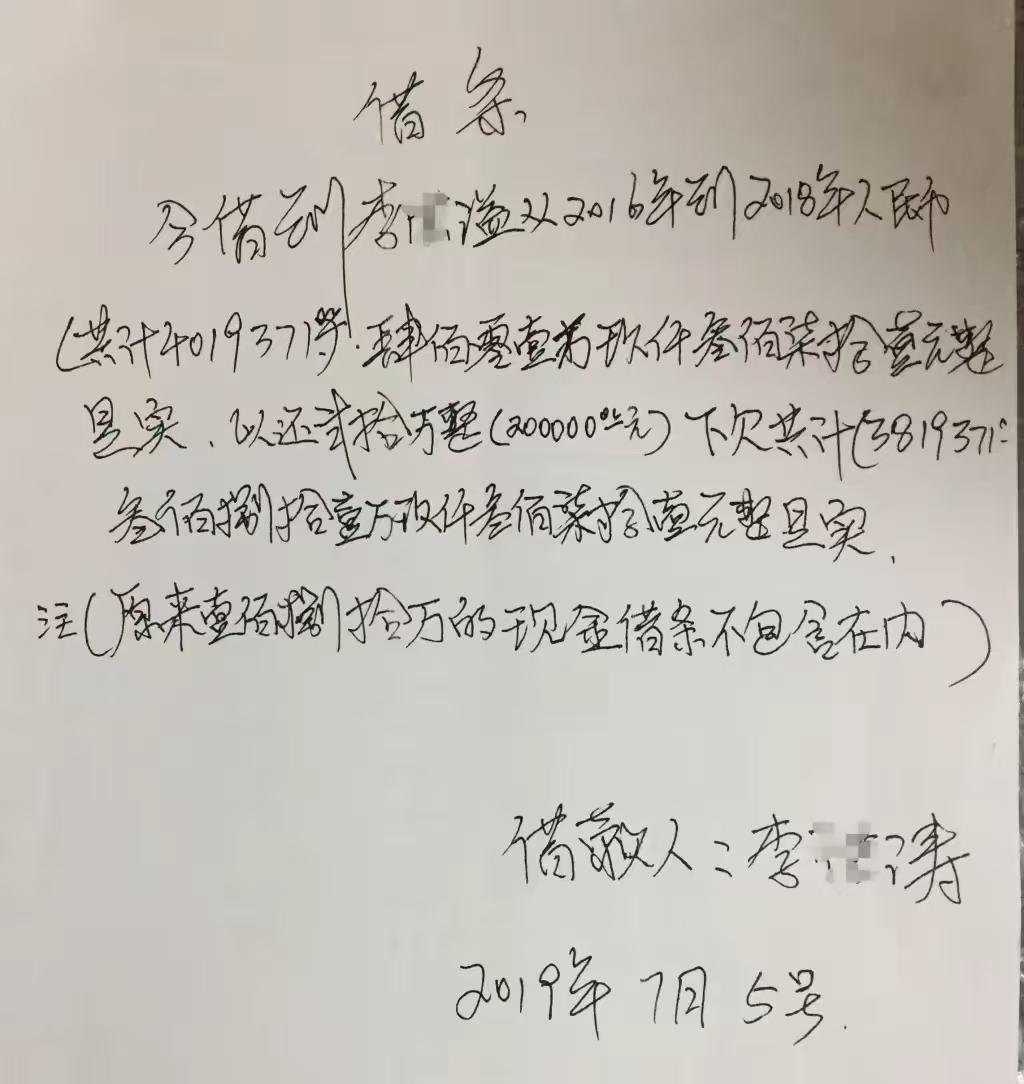 借条
今借到李溢从2016年到2018年人民币
(共计4019371.肆佰零壹万玖仟叁佰柒拾壹元整
是实、以还弍拾万整(200000元)下欠共计(3819371
叁佰捌拾壹万玖仟叁佰柒拾壹元整是实、
注(原来壹佰捌拾万的现金借条不包含在内)
借款人:李涛
2019年7月5号.